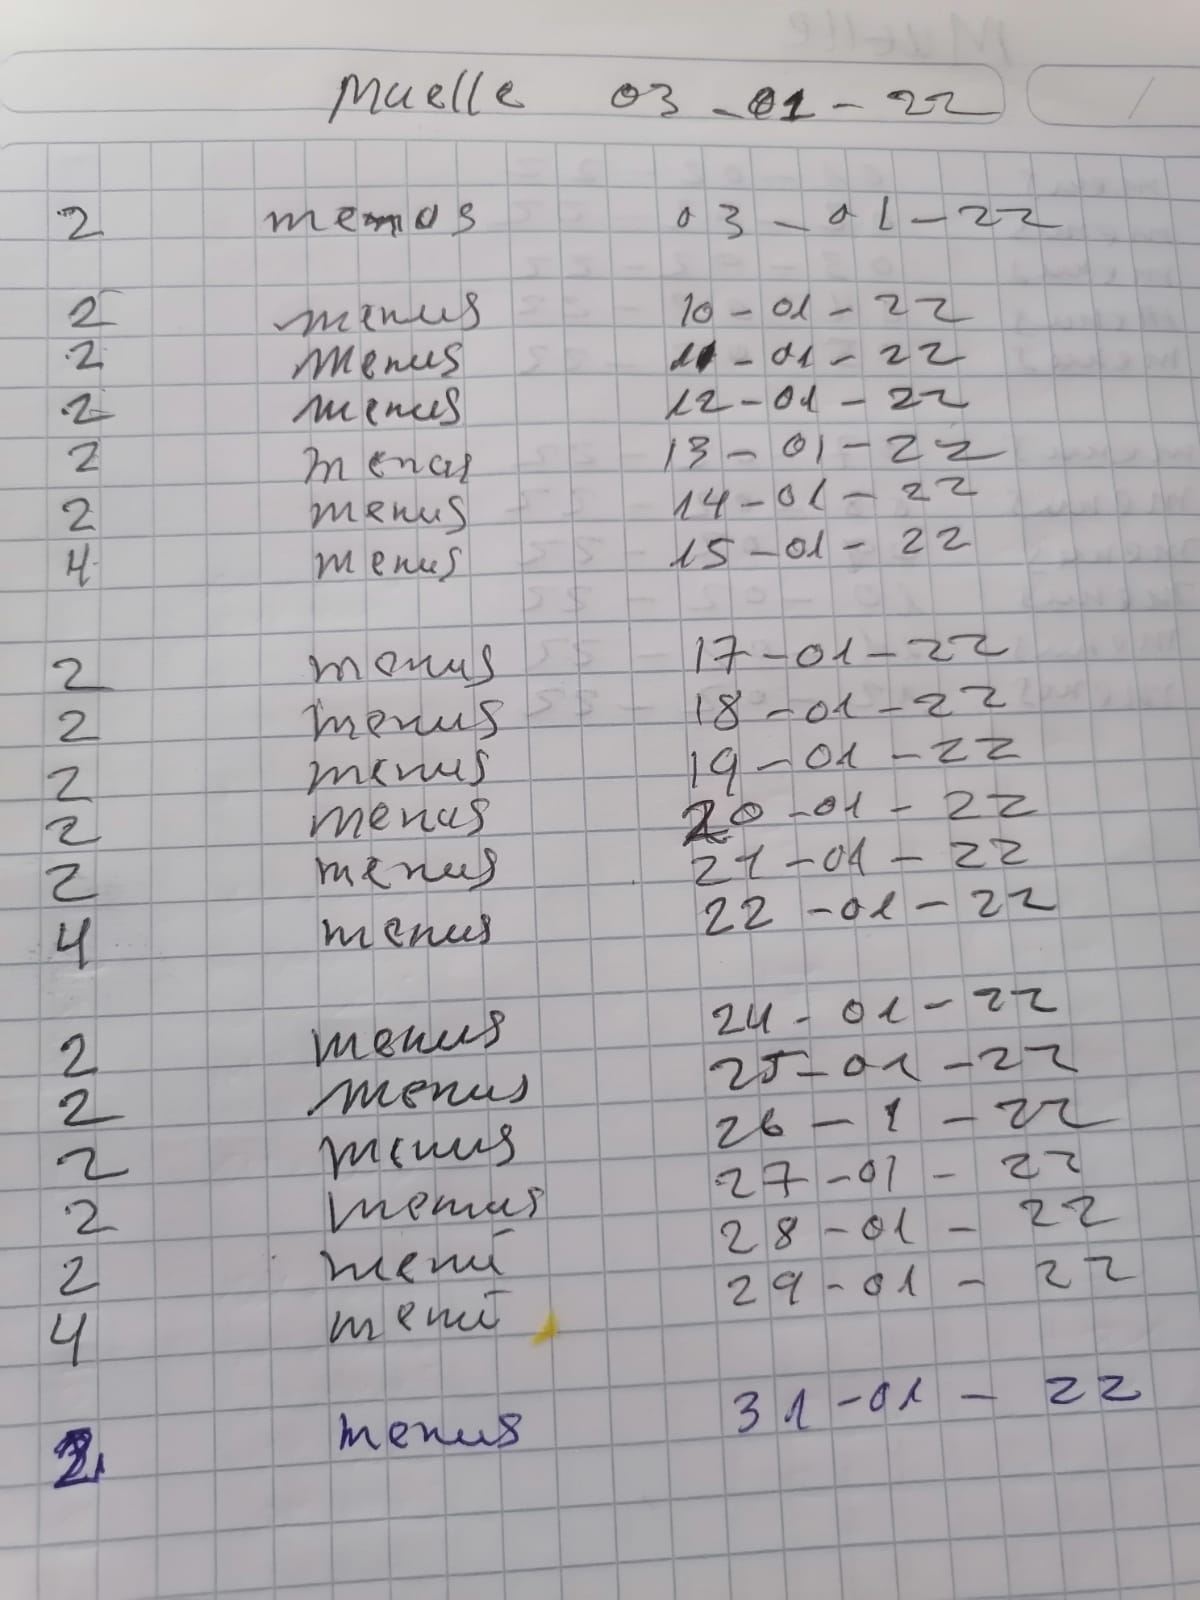 Muelle 03-01-22
2 menos 03-01-22
2 menus 10-01-22
2 menus 11-01-22
2 menus 12-01-22
2 menus 13-01-22
2 menus 14-01-22
4 menus 15-01-22
2 menus 17-01-22
2 menus 18-01-22
2 menus 19-01-22
2 menus 20-01-22
2 menus 21-01-22
4 menus 22-01-22
2 menus 24-01-22
2 menus 25-01-22
2 menus 26-1-22
2 menus 27-01-22
2 menú 28-01-22
4 menú 29-01-22
2 menus 31-01-22